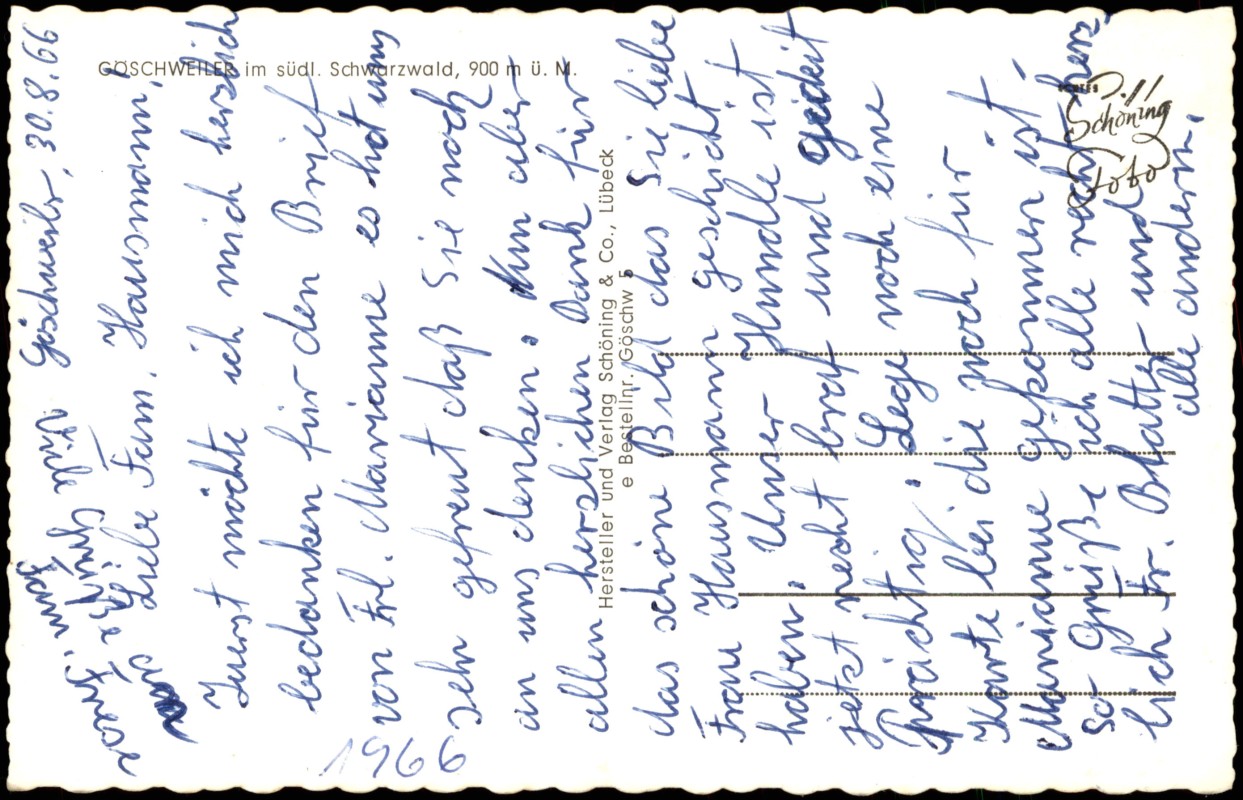 GÖSCHWEILER im südl. Schwarzwald, 900 m ü. M.
Göschweiler, 30.8.66
Liebe Fam. Hausmann,
Zuerst möchte ich mich herzlich
bedanken für den Brief
von Frl. Marianne es hat uns
sehr gefreut daß Sie noch
an uns denken. Nun aber
allen herzlichen Dank für
das schöne Bild das Sie liebe
Frau Hausmann geschickt
haben. Unser Hundle ist
jetzt recht brav und gedeit
Prächtig. Lege noch eine
Karte bei die noch für
Marianne gekommen ist,
So Grüße ich alle recht herz-
lich Fr. Blatter und
alle andern.
1966
Hersteller und Verlag Schöning & Co., Lübeck
e Bestellnr. Göschw 5
ECHTES
Schöning
Foto